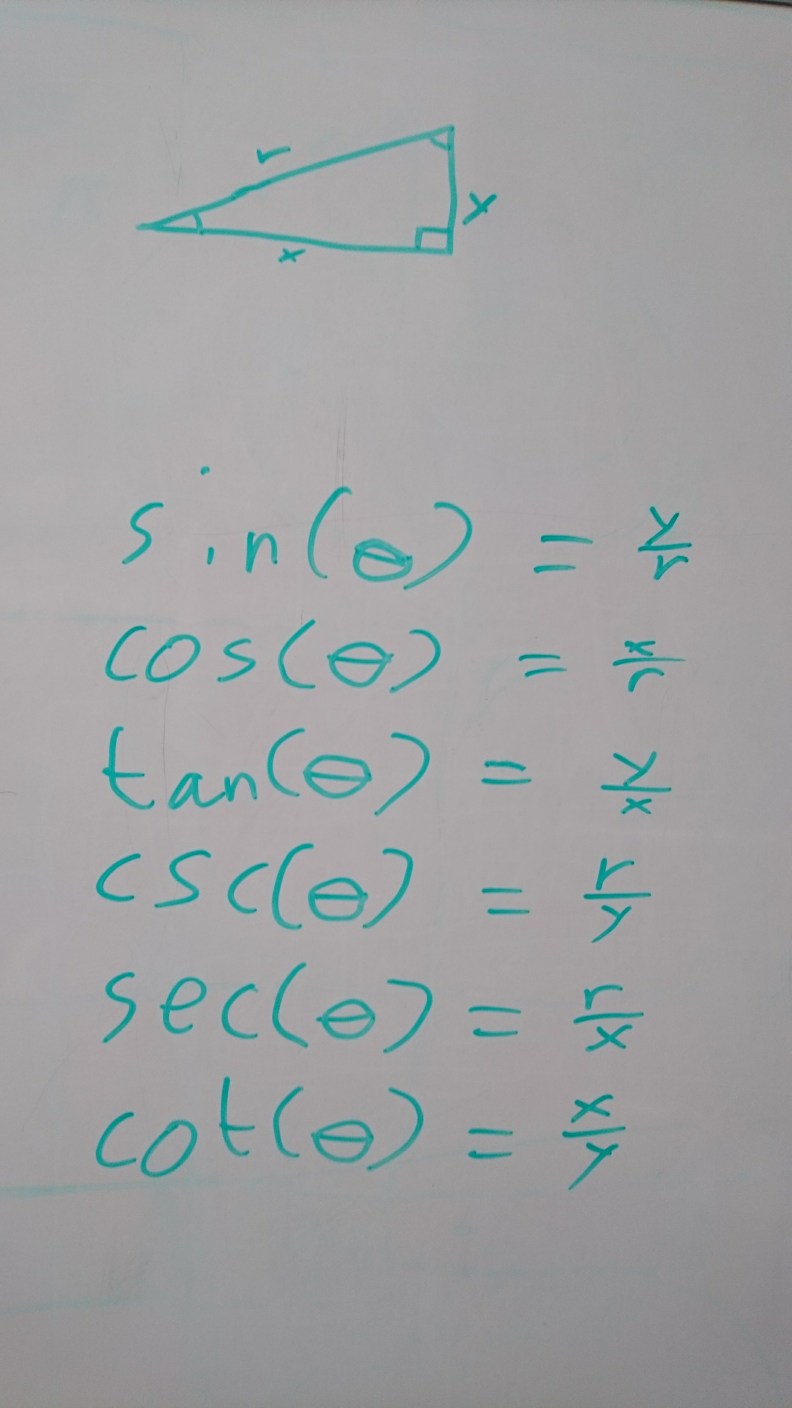 r
x
x
sin(θ) = y/r
cos(θ) = x/r
tan(θ) = y/x
csc(θ) = r/y
sec(θ) = r/x
cot(θ) = x/y